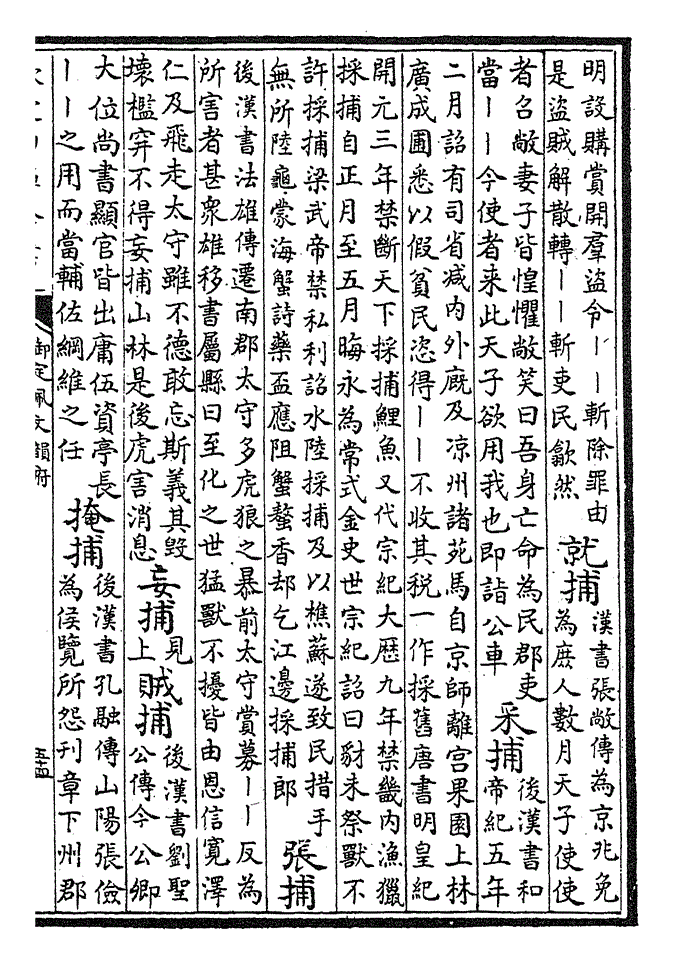 明設購賞開羣盜令丨丨斬除罪由
是盜賊解散轉丨丨斬吏民歙然
就捕
漢書張敞傳為京兆免
為庶人數月天子使使
者召敞妻子皆惶懼敞笑曰吾身亡命為民郡吏
當丨丨今使者来此天子欲用我也即詣公車
采捕
後漢書和
帝紀五年
二月詔有司省減内外廐及凉州諸苑馬自京師離宫果園上林
廣成圃悉以假貧民恣得丨丨不收其税一作採舊唐書明皇紀
開元三年禁斷天下採捕鯉魚又代宗紀大厯九年禁畿内漁獵
採捕自正月至五月晦永為常式金史世宗紀詔曰豺未祭獸不
許採捕梁武帝禁私利詔水陸採捕及以樵蘇遂致民措手
無所陸龜蒙海蟹詩藥盃應阻蟹螯香却乞江邊採捕郎
張捕
後漢書法雄傳遷南郡太守多虎狼之暴前太守賞募丨丨反為
所害者甚衆雄移書屬縣曰至化之世猛獸不擾皆由恩信寛澤
仁及飛走太守雖不德敢忘斯義其毁
壞檻穽不得妄捕山林是後虎害消息
妄捕
見
上
賊捕
後漢書劉聖
公傳今公卿
大位尚書顯官皆出庸伍資亭長
丨丨之用而當輔佐綱維之任
掩捕
後漢書孔融傳山陽張儉
為侯覽所怨刊章下州郡
御定佩文韻府